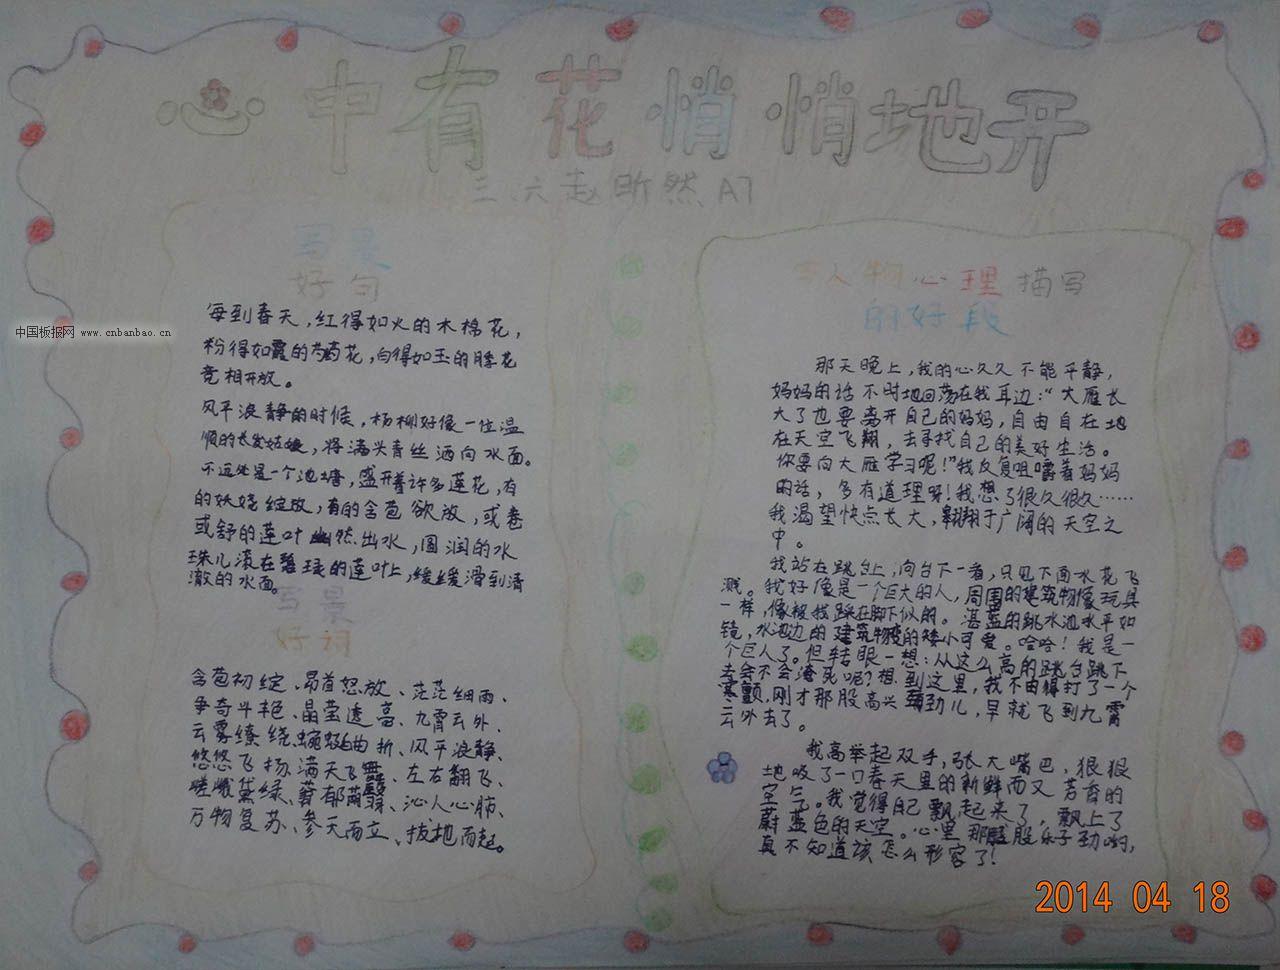 心中有花悄悄地开
三、六赵昕然A7
写景
好句
每到春天，红得如火的木棉花，
粉得如霞的芍药花，白得如玉的月季花
竞相开放。
风平浪静的时候，杨柳好像一位温
顺的长发姑娘，将满头青丝洒向水面。
不远处是一个池塘，盛开着许多莲花，有
的妖娆绽放，有的含苞欲放，或卷
或舒的莲叶幽然出水，圆润的水
珠儿滚在碧绿的莲叶上，缓缓滑到清
澈的水面。
写景
好词
含苞初绽、昂首怒放、茫茫细雨、
争奇斗艳、晶莹透亮、九霄云外、
云雾缭绕、蜿蜒曲折、风平浪静、
悠悠飞扬、满天飞舞、左右翻飞、
嗟峨黛绿、蓊郁荫翳、沁人心肺、
万物复苏、参天而立、拔地而起。
写人物心理描写
的好段
那天晚上，我的心久久不能平静，
妈妈的话不时地回荡在我耳边：“大雁长
大了也要离开自己的妈妈，自由自在地
在天空飞翔，去寻找自己的美好生活。
你要向大雁学习呢！”我反复咀嚼着妈妈
的话，多有道理呀！我想了很久很久……
我渴望快点长大，翱翔于广阔的天空之
中。
我站在跳台上，向台下一看，只见下面水花飞
溅。我好像是一个巨大的人，周围的建筑物像玩具
一样，像被我踩在脚下似的。湛蓝的跳水池水平如
镜，水池边的建筑物变的矮小可爱。哈哈！我是一
个巨人了。但转眼一想：从这么高的跳台跳下
去会不会淹死呢？想到这里，我不由得打了一个
寒颤，刚才那股高兴劲儿，早就飞到九霄
云外去了。
我高举起双手，张大嘴巴，狠狠
地吸了一口春天里的新鲜而又芳香的
空气。我觉得自己飘起来了，飘上了
蔚蓝色的天空。心里那股乐子劲哟，
真不知道该怎么形容了！
中国板报网 www.cnbanbao.cn
2014 04 18